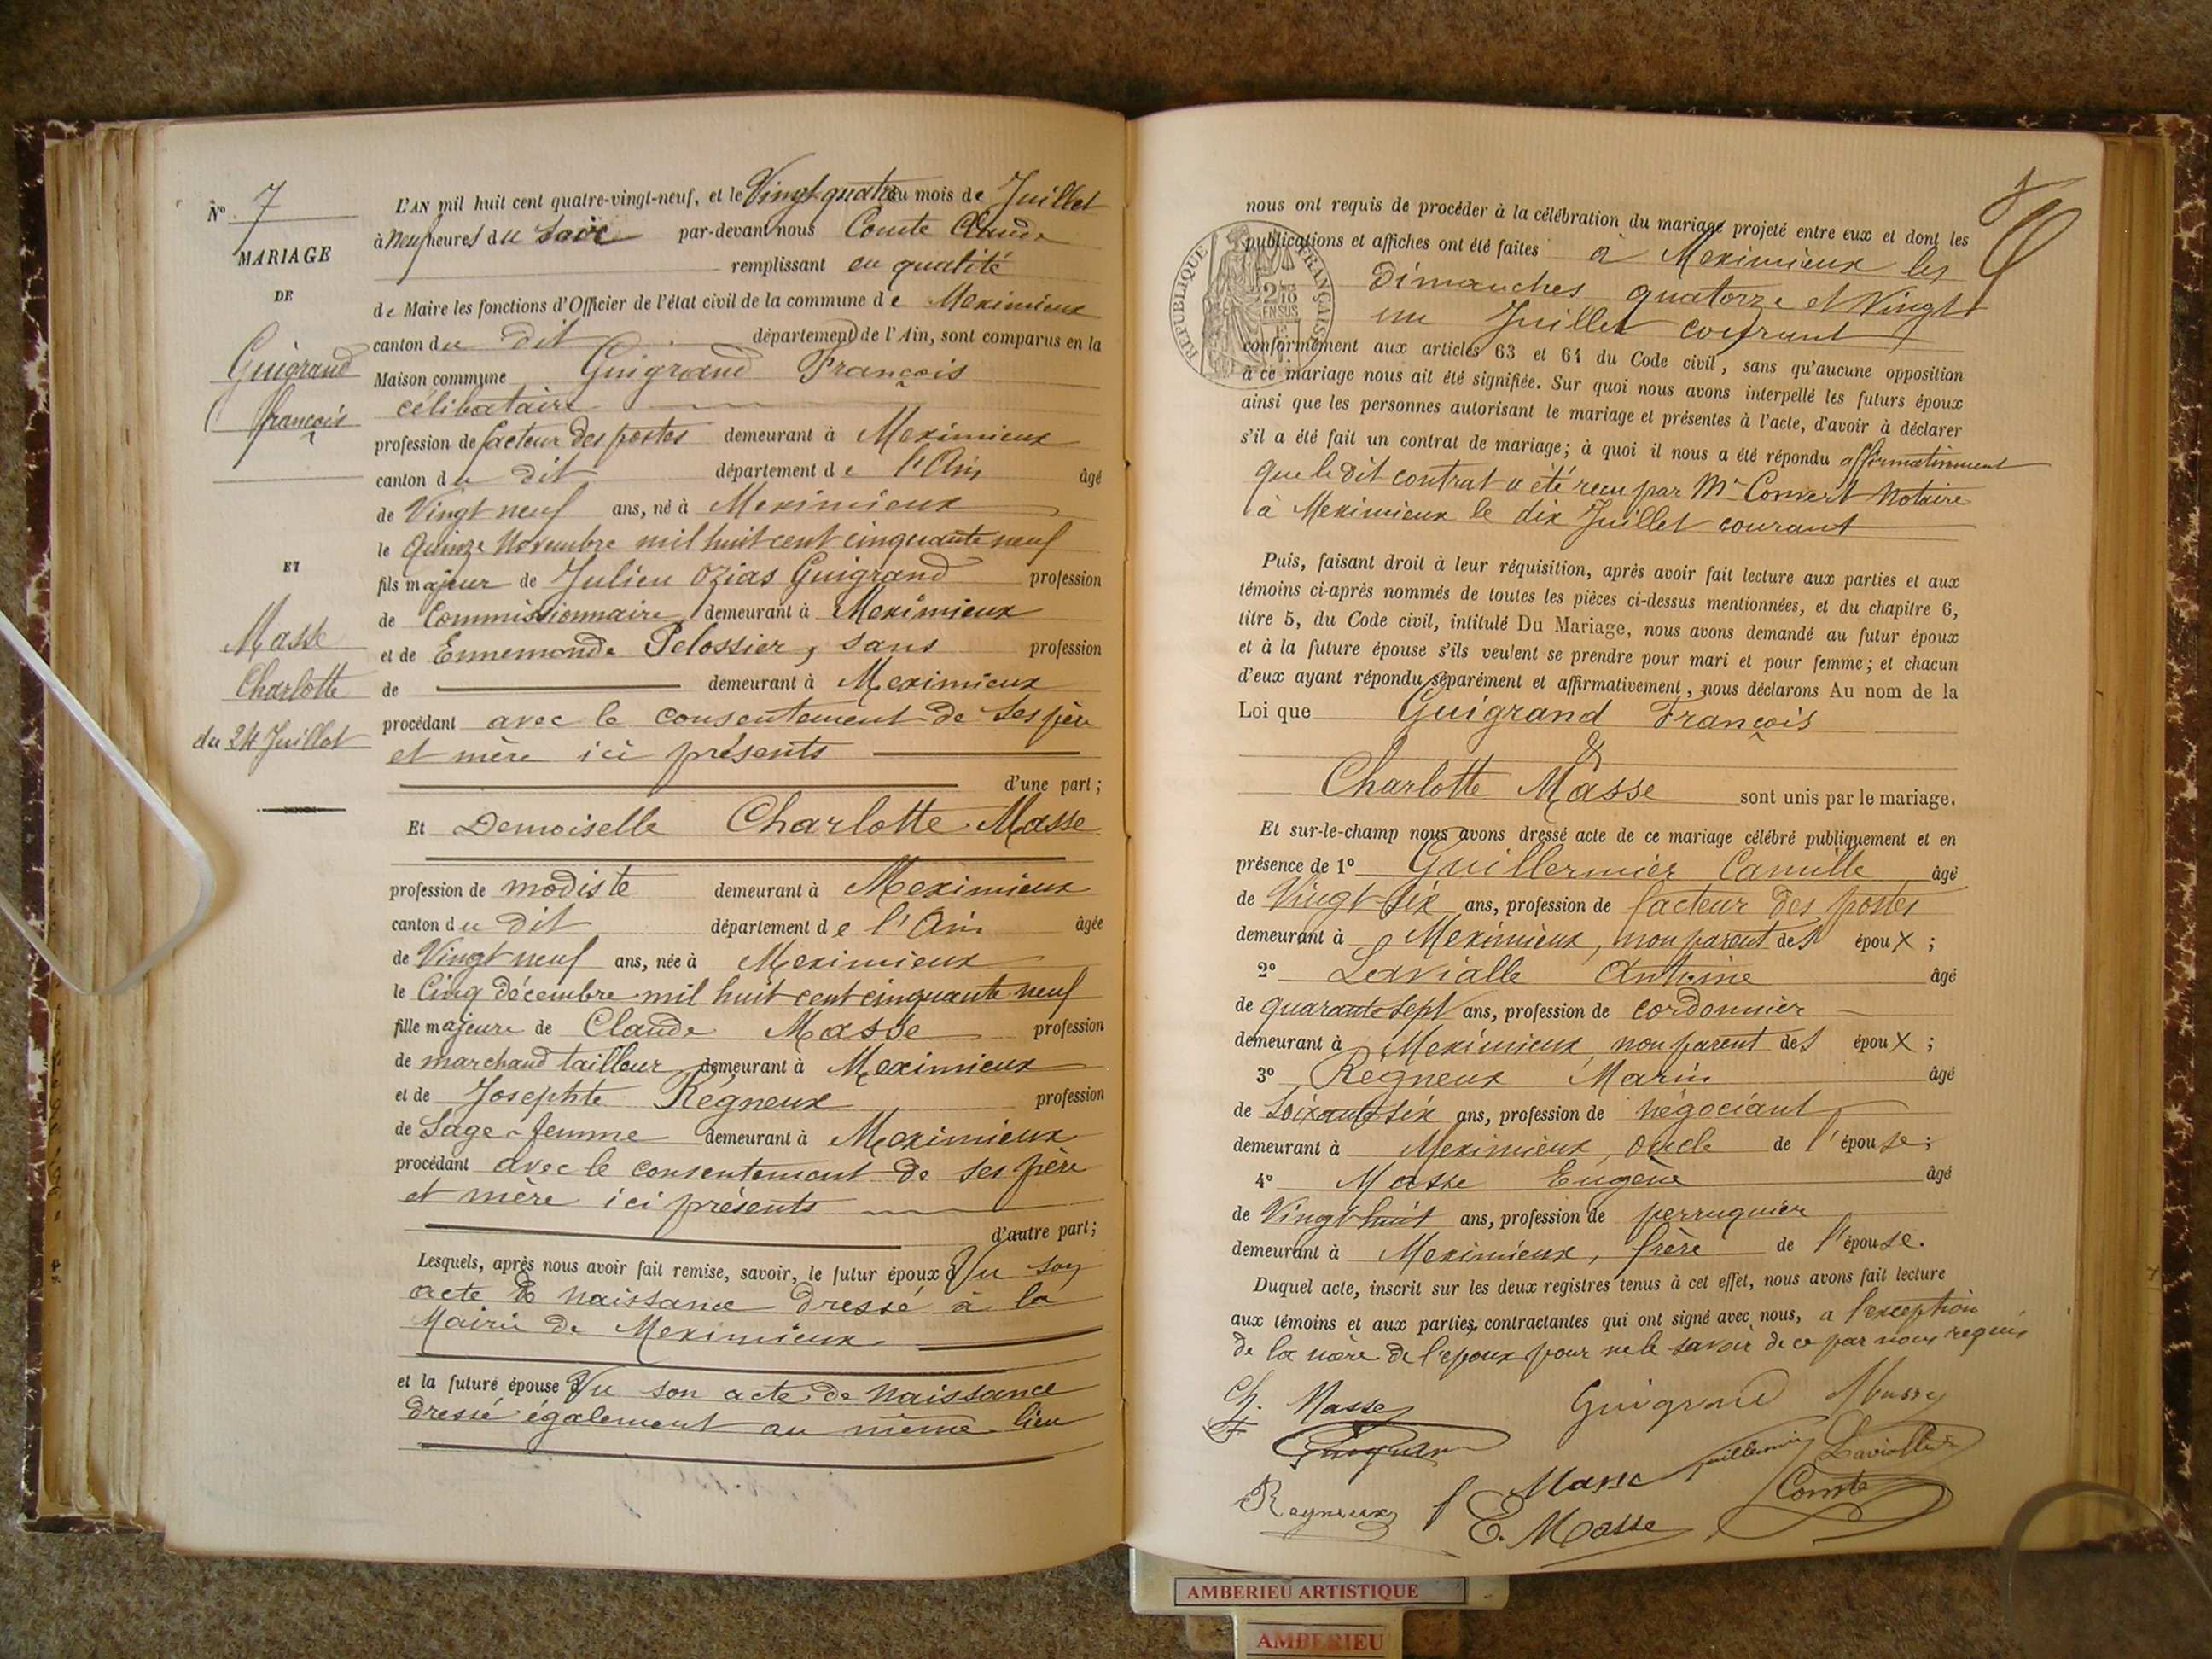 N° 7
MARIAGE
DE
Guigrand
François
ET
Masse
Charlotte
du 24 Juillet
L'AN mil huit cent quatre-vingt-neuf, et le Vingt quatre du mois de Juillet
à Neuf heures du soir par-devant nous Comte Claude
remplissant en qualité
de Maire les fonctions d'Officier de l'état civil de la commune de Meximieux
canton du dit département de l'Ain, sont comparus en la
Maison commune Guigrand François
célibataire
profession de facteur des postes demeurant à Meximieux
canton du dit département de l'Ain âgé
de Vingt neuf ans, né à Meximieux
le quinze Novembre mil huit cent cinquante neuf
fils majeur de Julien Ozias Guigrand profession
de Commissionnaire demeurant à Meximieux
et de Ennemonde Pelossier, sans profession
de demeurant à Meximieux
procédant avec le consentement de ses père
et mère ici présents
d'une part;
Et Demoiselle Charlotte Masse
profession de modiste demeurant à Meximieux
canton du dit département de l'Ain âgée
de Vingt neuf ans, née à Meximieux
le Cinq décembre mil huit cent cinquante neuf
fille majeure de Claude Masse profession
de marchand tailleur demeurant à Meximieux
et de Josephte Régneux profession
de Sage-femme demeurant à Meximieux
procédant avec le consentement de ses père
et mère ici présents
d'autre part;
Lesquels, après nous avoir fait remise, savoir, le futur époux Vu son
acte de naissance dressé à la
Mairie de Meximieux
et la future épouse Vu son acte de naissance
dressé également au même lieu
nous ont requis de procéder à la célébration du mariage projeté entre eux et dont les
publications et affiches ont été faites à Meximieux les
Dimanches quatorze et Vingt
un Juillet courant
conformément aux articles 63 et 64 du Code civil, sans qu'aucune opposition
à ce mariage nous ait été signifiée. Sur quoi nous avons interpellé les futurs époux
ainsi que les personnes autorisant le mariage et présentes à l'acte, d'avoir à déclarer
s'il a été fait un contrat de mariage; à quoi il nous a été répondu affirmativement
que le dit contrat a été reçu par Mr Convert Notaire
à Meximieux le dix Juillet courant
RÉPUBLIQUE FRANÇAISE
Puis, faisant droit à leur réquisition, après avoir fait lecture aux parties et aux
témoins ci-après nommés de toutes les pièces ci-dessus mentionnées, et du chapitre 6,
titre 5, du Code civil, intitulé Du Mariage, nous avons demandé au futur époux
et à la future épouse s'ils veulent se prendre pour mari et pour femme; et chacun
d'eux ayant répondu séparément et affirmativement, nous déclarons Au nom de la
Loi que Guigrand François
&
Charlotte Masse sont unis par le mariage.
Et sur-le-champ nous avons dressé acte de ce mariage célébré publiquement et en
présence de 1° Guillermier Camille âgé
de Vingt-six ans, profession de facteur des postes
demeurant à Meximieux, non parent des époux;
2° Lavialle Antoine âgé
de quarante sept ans, profession de cordonnier
demeurant à Meximieux, non parent des époux;
3° Régneux Marin âgé
de Soixante six ans, profession de négociant
demeurant à Meximieux, oncle de l'épouse;
4° Masse Eugène âgé
de Vingt huit ans, profession de perruquier
demeurant à Meximieux, frère de l'épouse.
Duquel acte, inscrit sur les deux registres tenus à cet effet, nous avons fait lecture
aux témoins et aux parties contractantes qui ont signé avec nous, a l'exception
de la mère de l'époux pour ne le savoir de ce par nous requis
Ch. Masse Guigrand Masse
Guigrand Guillermier Lavialle
Regneux Masse Comte
E. Masse
AMBERIEU ARTISTIQUE
AMBERIEU